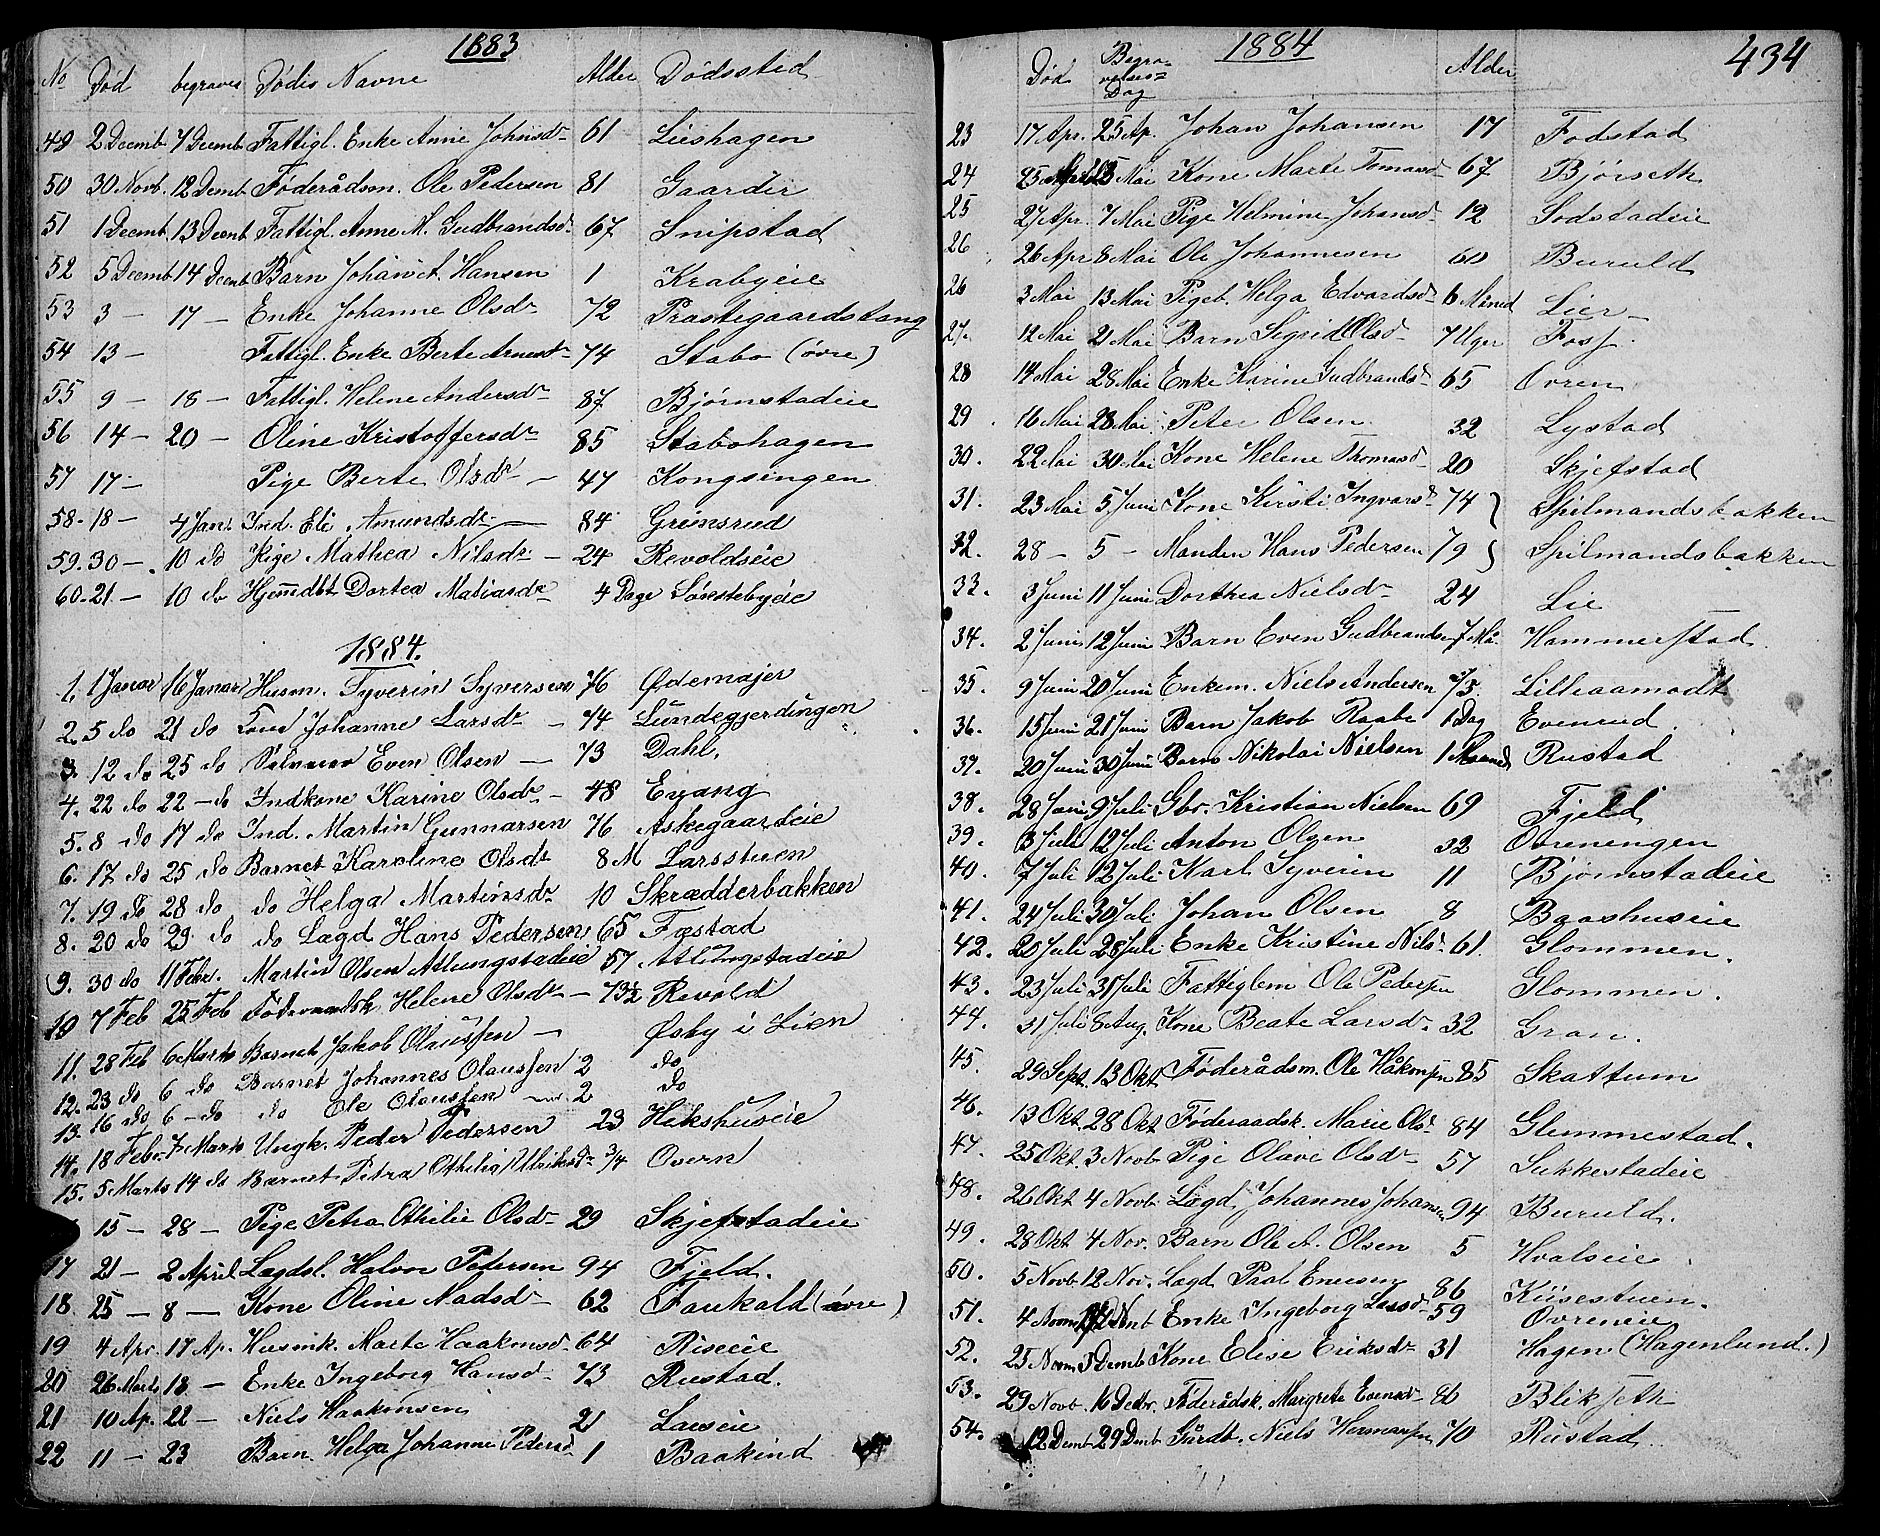 1883
No Død begraves Dødes Navne Alder Dødssted
49 2 Decemb 7 Decemb Fattigl. Enke Anne Johnsdr 61 Lieshagen
50 30 Novb. 12 Decmb Føderådsm. Ole Pedersen 81 Gaarder
51 1 Decemb 13 Decmb Fattigl. Anne M. Gudbrandsdr 67 Snipstad
52 5 Decemb 14 Decmb Barn Johan Hansen 1 Krabyeie
53 3 — 17 — Enke Johanne Olsdr 72 Præstegaardstang
54 13 — Fattigl. Enke Berte Arnesdr 74 Stabo (øvre)
55 9 — 18 — Fattigl. Helene Andersdr 87 Bjørnstadeie
56 14 — 20 — Oline Kristoffersdr 85 Stabohagen
57 17 — Pige Berte Olsdr — 47 Kongsingen
58. 18 — 4 Jan. Ind. Eli Amundsdr — 84 Grimsrud
59. 30 — 10 do Pige Mathea Nilsdr — 24 Revoldseie
60. 21 — 10 do Hjemdbt Dortea Matiasdr 4 Dage Sønstebyeie
1884.
1. 1 Januar 16 Januar Husm. Syverin Syversen 76 Ødemajer
2. 5 do 21 do Johanne Larsdr — 74 Lundegjerdingen
3. 12 do 25 do Even Olsen — 73 Dahl.
4. 22 do 22 — do Indkone Karine Olsdr — 48 Evang
5. 8 do 17 do Ind. Martin Gunnarsen 76 Askegaardeie
6. 17 do 25 do Barnet Karoline Olsdt 8 M Larsstuen
7. 19 do 28 do do Helga Martinsdr 10 Skrædderbakken
8. 20 do 29 do do Lægd Hans Pedersen 65 Fæstad
9. 30 do 11 Febr. Martin Olsen Allungstadeie 57 Allungstadeie
10 7 Feb 25 Feb Føderaadsk. Helene Olsdr — 73½ Revold
11. 28 Feb 6 Marts Barnet Jakob Olaussen — Øsby i Lien
12. 23 do 6 do Barnet Johannes Olaussen 2 do
13. 16 do 6 — do do Ole Olaussen — 2 do
14. 18 Febr 7 Marts Ungk. Peder Pedersen 23 Hekshuseie
15. 5 Marts 14 do Barnet Petra Othilie Ulriksdr 3/4 Overn
15 — 28 — Pige Petra Othilie Olsdr 29 Skjefstadeie
17 21 — 2 April Lægdsl. Halvor Pedersen 94 Fjeld.
18. 25 — 8 — Kone Oline Madsdr 62 Faukald (øvre)
19 4 Apr. 17 Ap. Husmk. Marte Haakonsdr 64 Riseeie
20 26 Marts 18 — Enke Ingeborg Hansdr 73 Rustad.
21 10 Ap. 22 — Niels Haakonsen 21 Laeseie
22 11 — 23 Barn Helga Johanne Pedersdr 1 Baakind
1884
434
Død Begra-
velses-
Dag Alder
23 17 Apr. 25 Ap. Johan Johansen 17 Fodstad
24 25 April 5 Mai Kone Marte Tomasdr 67 Bjørseth
25 27 Apr. 7 Mai Pige Helmine Johansdr 12 Sodstadeie
26 26 Apr 8 Mai Ole Johannesen 60 Buruld
26 3 Mai 13 Mai Pigeb. Helga Edvardsdr 6 Måned Lier
27. 12 Mai 21 Mai Barn Sigrid Olsdr 7 Uger Foss.
28 14 Mai 28 Mai Enke Karine Gudbrandsdr 65 Ovren
29 16 Mai 28 Mai Peter Olsen 32 Lystad
30. 22 Mai 30 Mai Kone Helene Thomasdr 20 Skjefstad
31. 23 Mai 5 Juni Kone Kirsti Ingvarsdr 74 Spilmandsbakken
32. 28 — 5 — Manden Hans Pedersen 79 Spilmandsbakken
33. 3 Juni 11 Juni Dorthea Nielsdr 24 Lie
34. 2 Juni 12 Juni Barn Even Gudbrandsen 7 Må Hammerstad
35. 9 Juni 20 Juni Enkem. Niels Andersen 73. Lilleaamodt
36. 15 Juni 21 Juni Barn Jakob Raabe 1 Dag Evenrud
37. 20 Juni 30 Juni Barn Nikolai Nielsen 1 Maaned Rustad
38. 28 Juni 9 Juli Gbr. Kristian Nielsen 69 Fjeld
39. 3 Juli 12 Juli Anton Olsen 32 Ovrenengen
40. 7 Juli 12 Juli Karl Syverin 11 Bjørnstadeie
41. 24 Juli 30 Juli Johan Olsen 8 Baashuseie
42. 20 Juli 28 Juli Enke Kristine Nilsdr 61. Glommen.
43. 23 Juli 31 Juli Fattiglem Ole Pedersen Glommen.
44. 31 Juli 8 Aug. Kone Beate Larsdr 32 Gran.
45. 29 Sept. 13 Okt Føderådsm. Ole Håkonsen 85 Skattum
46. 13 Okt 28 Okt Føderaadsk. Marie Olsdr 84 Glemmestad.
47. 25 Okt. 3 Novb. Pige Olave Olsdr 57 Sukkestadeie
48. 26 Okt 4 Novb. Lægd. Johannes Johansen 94 Buruld.
49. 28 Okt 4 Nov. Barn Ole A. Olsen 5 Hvalseie
50. 5 Novb 12 Nov. Lægd. Paal Enersen 86 Kiisestuen.
51. 4 Novm Novb Enke Ingeborg Larsdr 59 Ovreneie
52. 25 Novm 5 Decmb Kone Elise Eriksdr 31 Hagen (Hagenlund.)
53. 29 Novb. 16 Decbr. Føderådsk. Margrete Evensdr 86 Blikseth
54. 12 Decmb 29 Decmb Gårdb. Niels Hermansen 70 Rustad